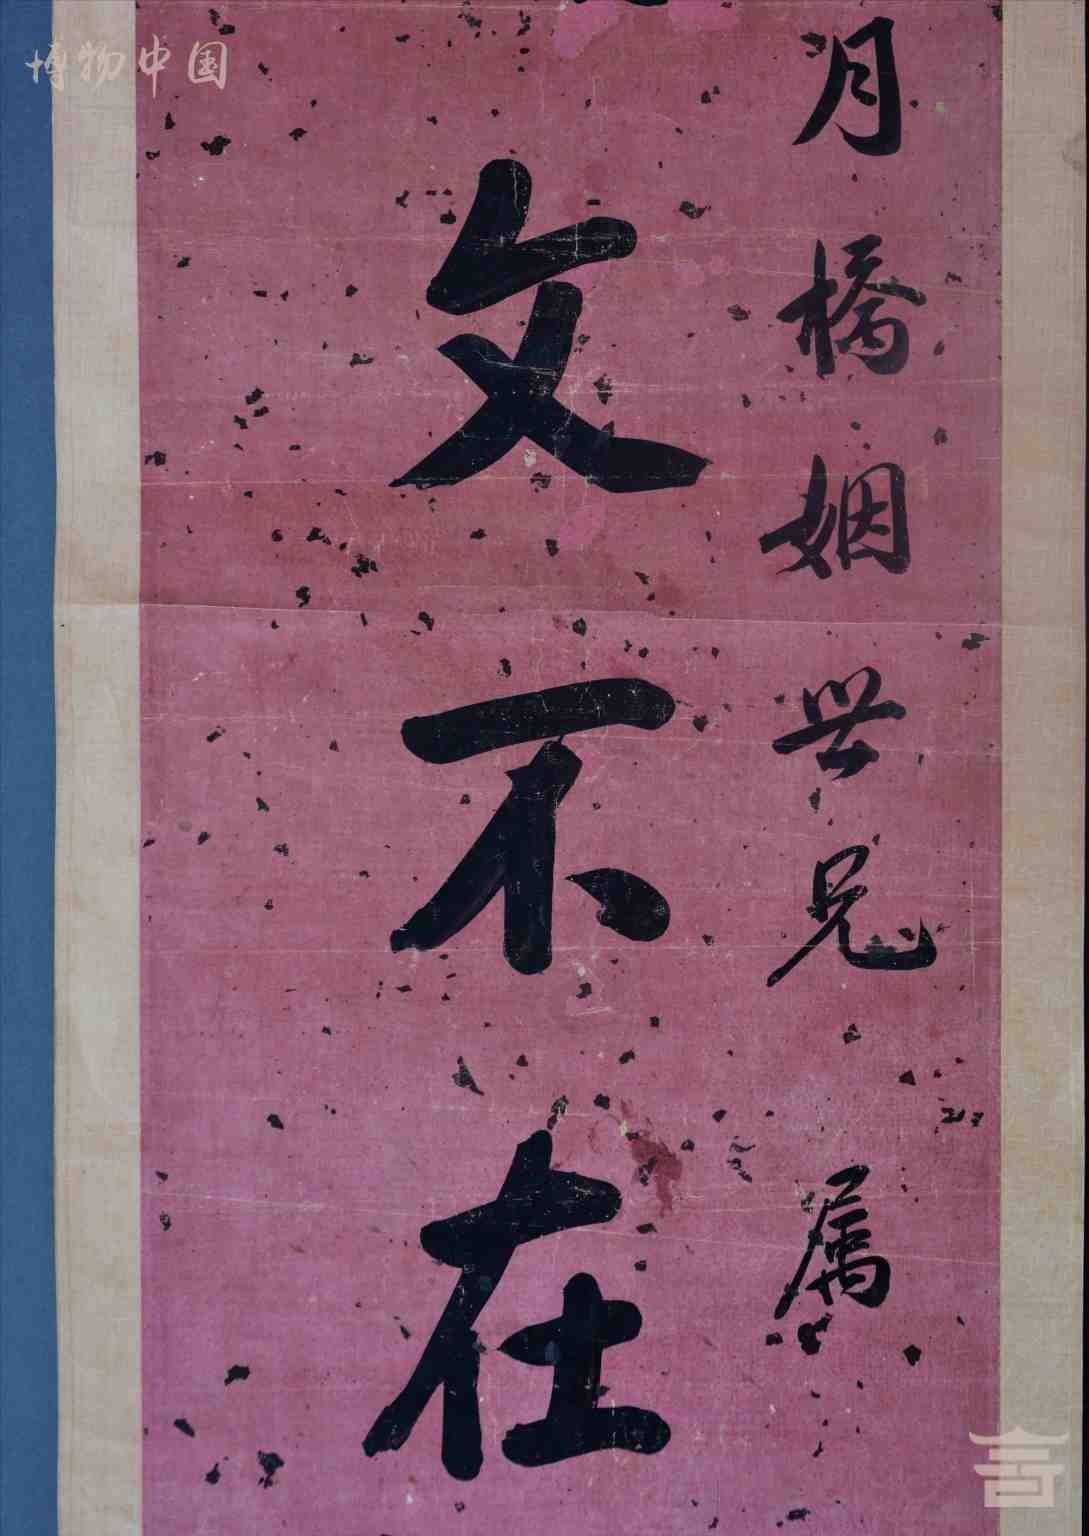 博物中国
月橋姻世兄属
文不在